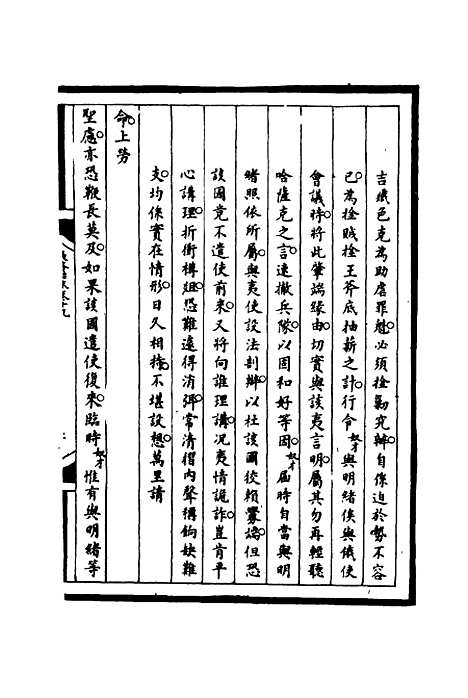 吉振色克為助虐罪魁必須捡勦究辦自係迫於勢不容
已為捡賊捡王斧底抽薪之計行令奴才與明緒俟與俄使
會議時將此肇端緣由切實與該夷言明屬其勿再輕聽
哈薩克之言速撤兵隊以固和好等因奴才屆時自當與明
緒照依所屬與夷使設法剖辦以杜該國狡賴釁端但恐
該國竟不遣使前來又將向誰理講況夷情詭詐豈肯平
心講理折衝樽俎恐難遽得消弭常清摺內聲稱餉缺難
支均係實在情形日久相持不堪設想萬里請
命上勞
聖慮亦恐鞭長莫及如果該國遣使復來臨時奴才惟有與明緒等